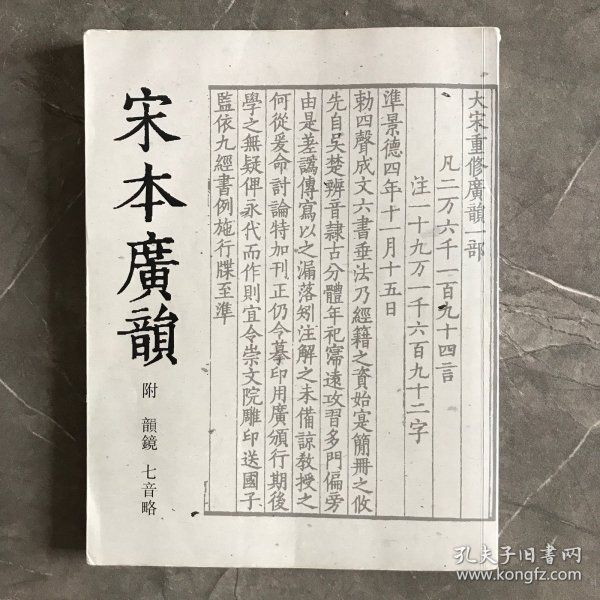 大宋重修廣韻一部
凡二万六千一百九十四言
注一十九万一千六百九十二字
準景德四年十一月十五日
勑四聲成文六書垂法乃經籍之資始寔簡冊之攸
先自吴楚辨音隷古分體年祀寖遠攻習多門偏旁
由是差譌傳寫以之漏落矧注解之未備諒教授之
何從爰命討論特加刊正仍令摹印用廣頒行期後
學之無疑俾永代而作則宜令崇文院雕印送國子
監依九經書例施行牒至準
宋本廣韻
附 韻鏡 七音略
孔夫子旧书网
www.kongfz.com